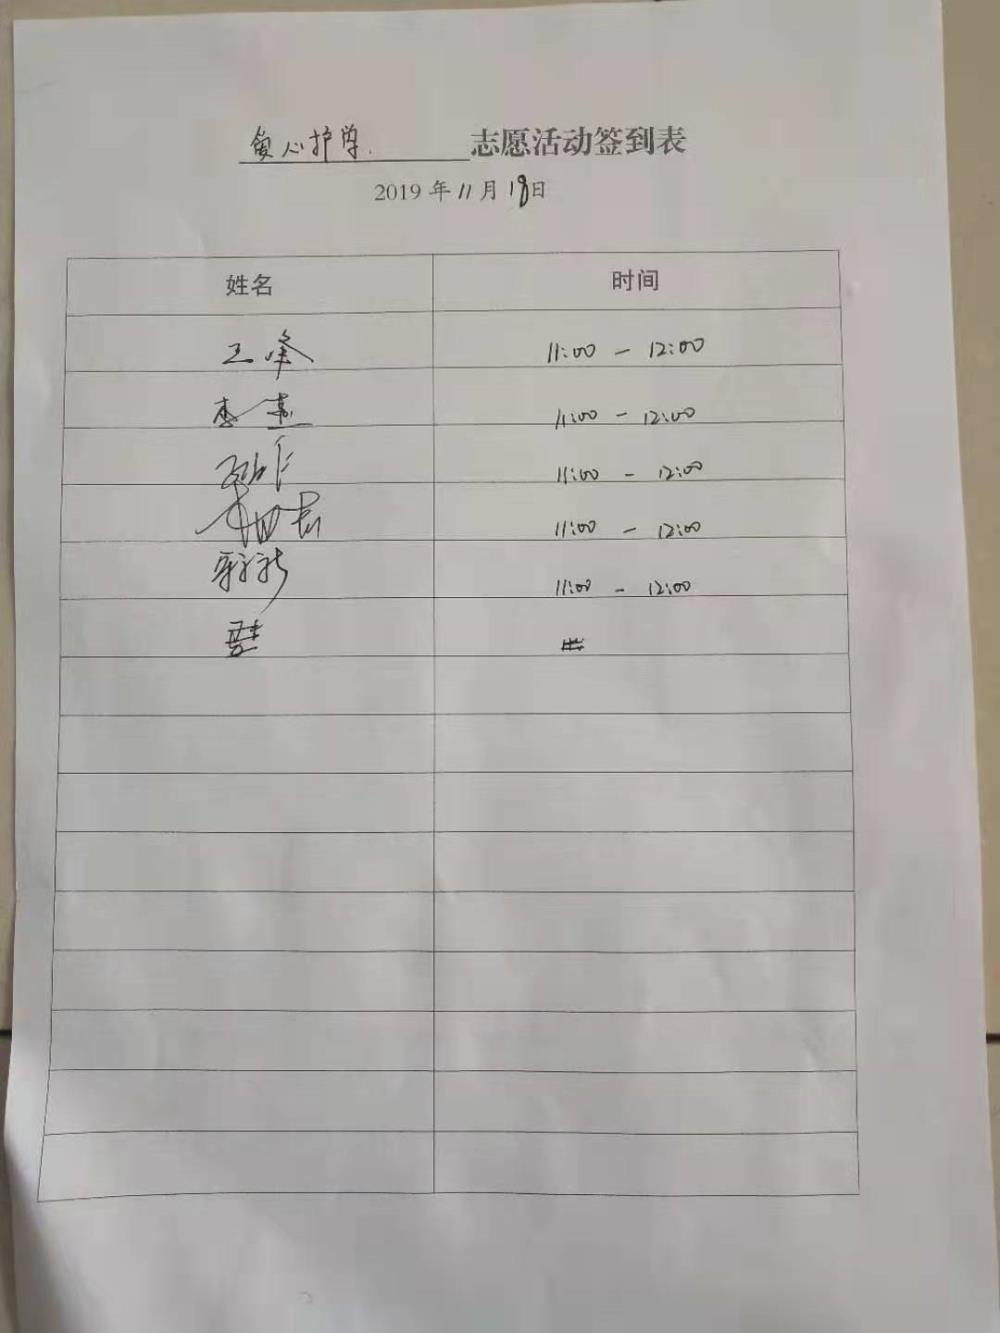 爱心护学. 志愿活动签到表
2019 年 11 月 18 日
姓名 时间
王峰 11:00 - 12:00
李 11:00 - 12:00
11:00 - 12:00
11:00 - 12:00
11:00 - 12:00